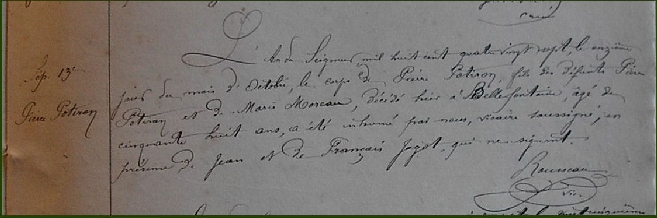 curé
L'An du Seigneur, mil huit cent quatre vingt sept, le onzième
Sép. 13e
jour du mois d'Octobre, le corps de Pierre Potiron, fils des défunts Pierre
Pierre Potiron
Potiron et de Marie Moreau, décédé hier à Bellefontaine, âgé de
cinquante huit ans, a été inhumé par nous, vicaire soussigné, en
présence de Jean et de François Jagot, qui ne signent.
Rousseau
vic.